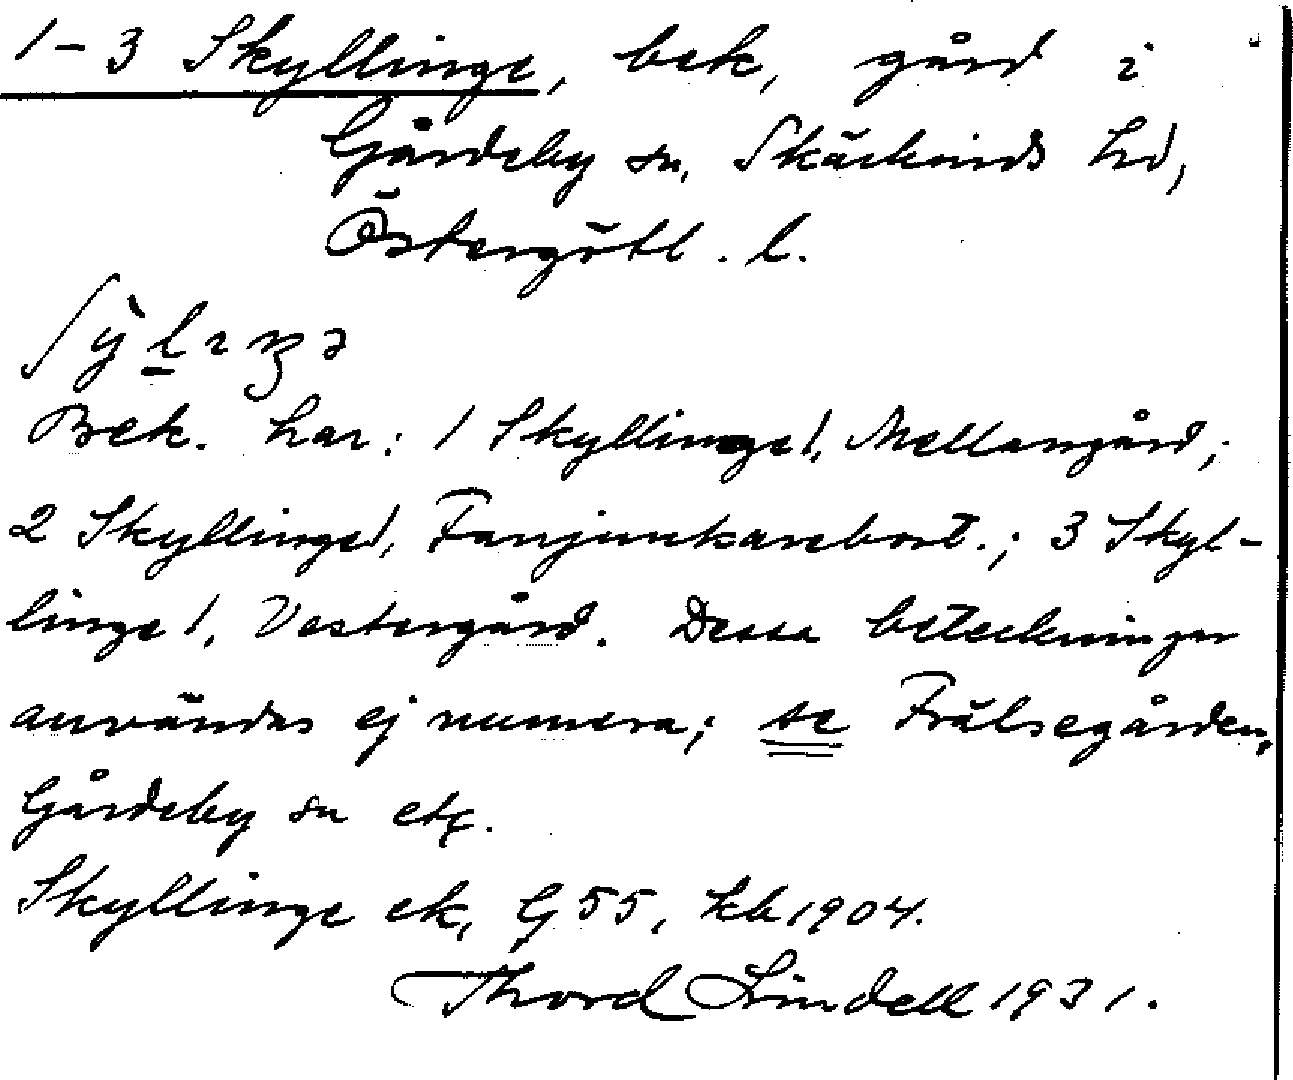 1-3 Skyllinge, bek, gård i
Gårdeby sn, Skärkinds hd,
Östergötl. l.
Bek. har: 1 Skyllinge l, Mellangård;
2 Skyllinge l, Fanjunkarebost.; 3 Skyl-
linge l, Vestergård. Dessa beteckningar
användas ej numera; se Frälsegården,
Gårdeby sn etc.
Skyllinge ek, G 55, kb 1904.
Thord Lindell 1931.